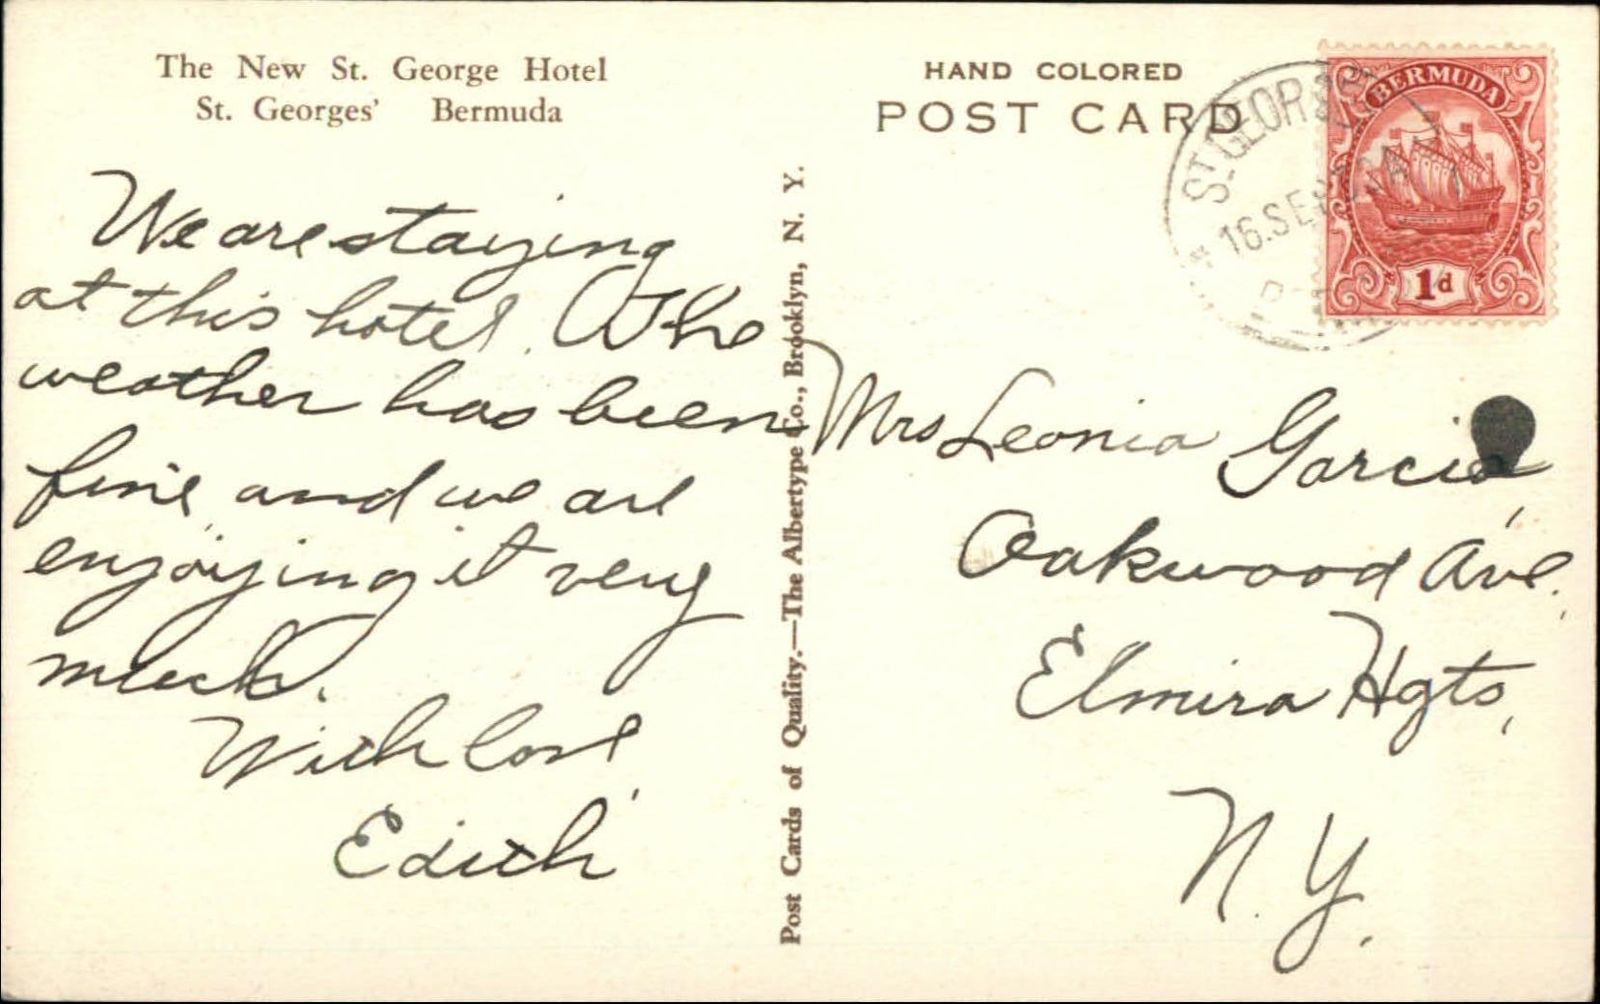 The New St. George Hotel
St. Georges' Bermuda
We are staying
at this hotel. The
weather has been
fine and we are
enjoying it very
much.
With love,
Edith
Post Cards of Quality.—The Albertype Co., Brooklyn, N. Y.
HAND COLORED
POST CARD
ST. GEORGES
16.SE
BERMUDA
1d
Mrs Leonia Garcia,
Oakwood Ave.,
Elmira Hgts,
N.Y.